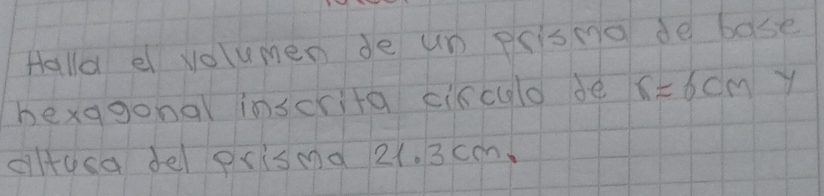 Halla el volumen de un prisma de base
hexagonal inscrita circulo de r=6cm y
altura del prisma 21.3cm.